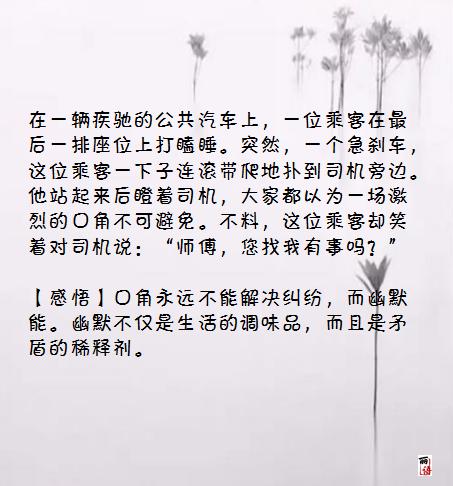 在一辆疾驰的公共汽车上，一位乘客在最
后一排座位上打瞌睡。突然，一个急刹车，
这位乘客一下子连滚带爬地扑到司机旁边。
他站起来后瞪着司机，大家都以为一场激
烈的口角不可避免。不料，这位乘客却笑
着对司机说：“师傅，您找我有事吗？”
【感悟】口角永远不能解决纠纷，而幽默
能。幽默不仅是生活的调味品，而且是矛
盾的稀释剂。